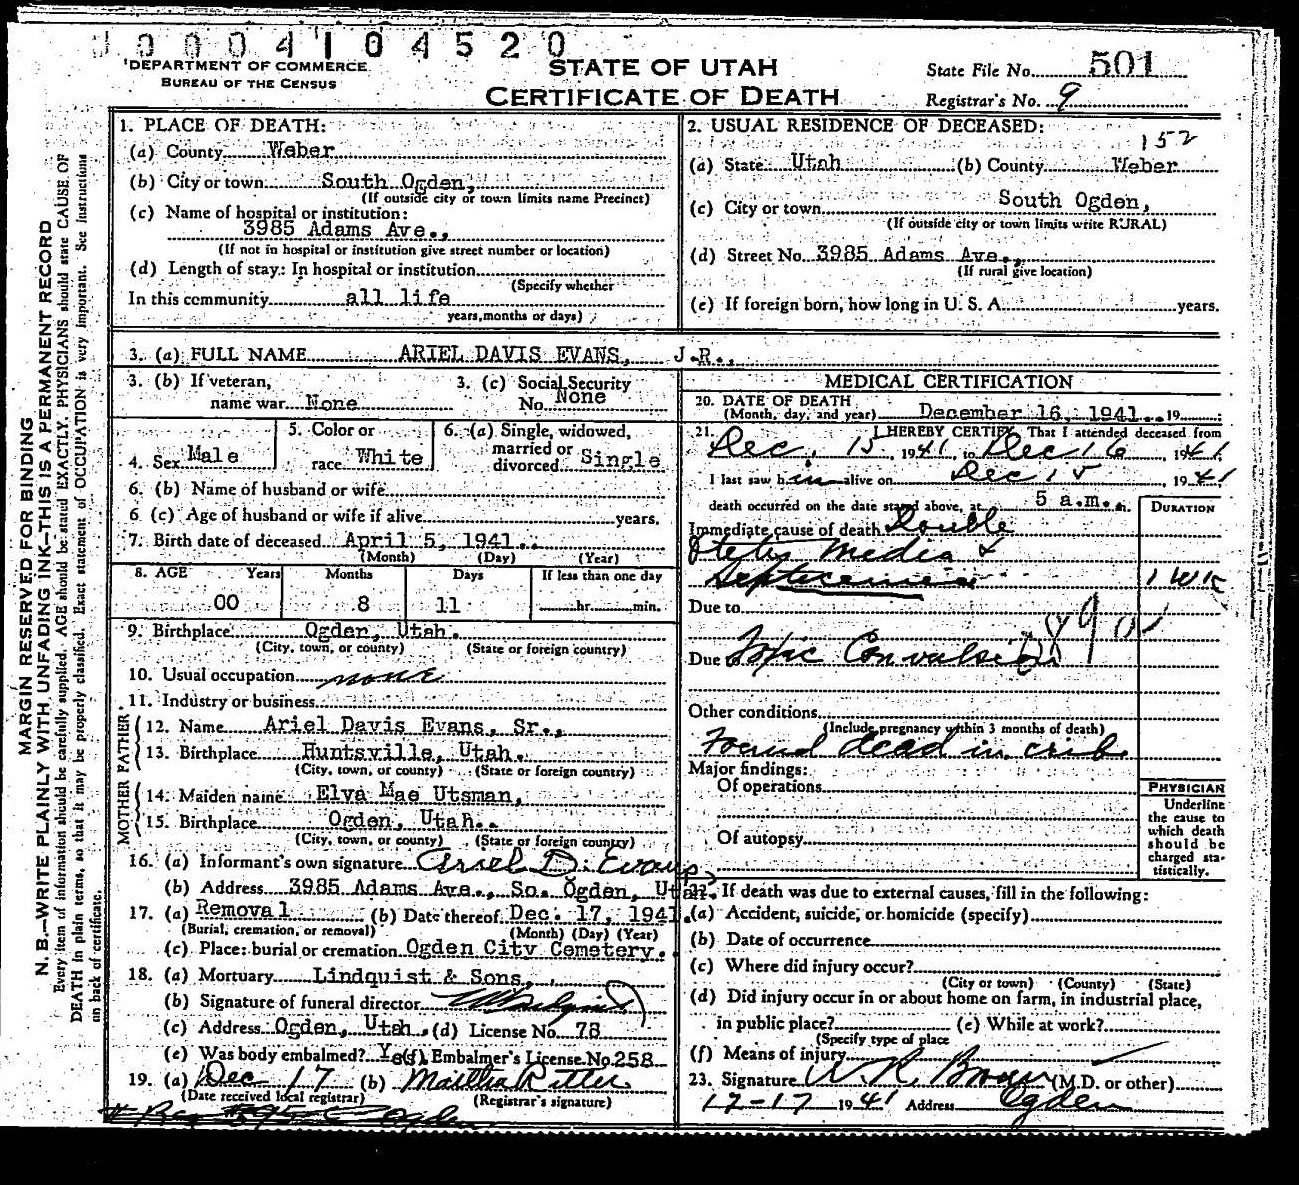 0004104520
DEPARTMENT OF COMMERCE
BUREAU OF THE CENSUS
STATE OF UTAH
CERTIFICATE OF DEATH
State File No. 501
Registrar's No. 9
MARGIN RESERVED FOR BINDING
N. B.—WRITE PLAINLY WITH UNFADING INK—THIS IS A PERMANENT RECORD
Every item of information should be carefully supplied. AGE should be stated EXACTLY. PHYSICIANS should state CAUSE OF
DEATH in plain terms, so that it may be properly classified. Exact statement of OCCUPATION is very important. See instructions
on back of certificate.
1. PLACE OF DEATH:
(a) County Weber
(b) City or town South Ogden,
(If outside city or town limits name Precinct)
(c) Name of hospital or institution:
3985 Adams Ave.,
(If not in hospital or institution give street number or location)
(d) Length of stay: In hospital or institution
(Specify whether
In this community all life
years, months or days)
2. USUAL RESIDENCE OF DECEASED:
152
(a) State Utah (b) County Weber
(c) City or town South Ogden,
(If outside city or town limits write RURAL)
(d) Street No. 3985 Adams Ave.,
(If rural give location)
(e) If foreign born, how long in U. S. A. years.
3. (a) FULL NAME ARIEL DAVIS EVANS, J.R.,
3. (b) If veteran, name war None
3. (c) Social Security No. None
4. Sex Male
5. Color or race White
6. (a) Single, widowed, married or divorced Single
6. (b) Name of husband or wife
6 (c) Age of husband or wife if alive years.
7. Birth date of deceased April 5, 1941.
(Month) (Day) (Year)
8. AGE Years Months Days If less than one day
00 8 11 hr. min.
9. Birthplace Ogden, Utah.
(City, town, or county) (State or foreign country)
10. Usual occupation none
11. Industry or business
FATHER
12. Name Ariel Davis Evans, Sr.,
13. Birthplace Huntsville, Utah.
(City, town, or county) (State or foreign country)
MOTHER
14. Maiden name Elva Mae Utsman,
15. Birthplace Ogden, Utah..
(City, town, or county) (State or foreign country)
16. (a) Informant's own signature Ariel D. Evans
(b) Address 3985 Adams Ave., So. Ogden, Utah.
17. (a) Removal (b) Date thereof Dec. 17, 1941.
(Burial, cremation, or removal) (Month) (Day) (Year)
(c) Place: burial or cremation Ogden City Cemetery.
18. (a) Mortuary Lindquist & Sons,
(b) Signature of funeral director
(c) Address Ogden, Utah. (d) License No. 78
(e) Was body embalmed? Yes (f) Embalmer's License No. 258
19. (a) Dec 17 (b) Martha Ritter
(Date received local registrar) (Registrar's signature)
Ogden
MEDICAL CERTIFICATION
20. DATE OF DEATH
(Month, day, and year) December 16, 1941. 19
21. I HEREBY CERTIFY, That I attended deceased from
Dec. 15, 1941, to Dec 16, 1941
I last saw him alive on Dec 15, 1941
death occurred on the date stated above, at 5 a.m. m.
DURATION
Immediate cause of death Double
Media &
Septecemia 1 wk
Due to
Due to Toxic Convulsion
Other conditions
(Include pregnancy within 3 months of death)
Found dead in crib
Major findings:
Of operations
Of autopsy
PHYSICIAN
Underline
the cause to
which death
should be
charged sta-
tistically.
22. If death was due to external causes, fill in the following:
(a) Accident, suicide, or homicide (specify)
(b) Date of occurrence
(c) Where did injury occur?
(City or town) (County) (State)
(d) Did injury occur in or about home on farm, in industrial place,
in public place? (e) While at work?
(Specify type of place
(f) Means of injury
23. Signature (M.D. or other)
12-17 1941 Address Ogden